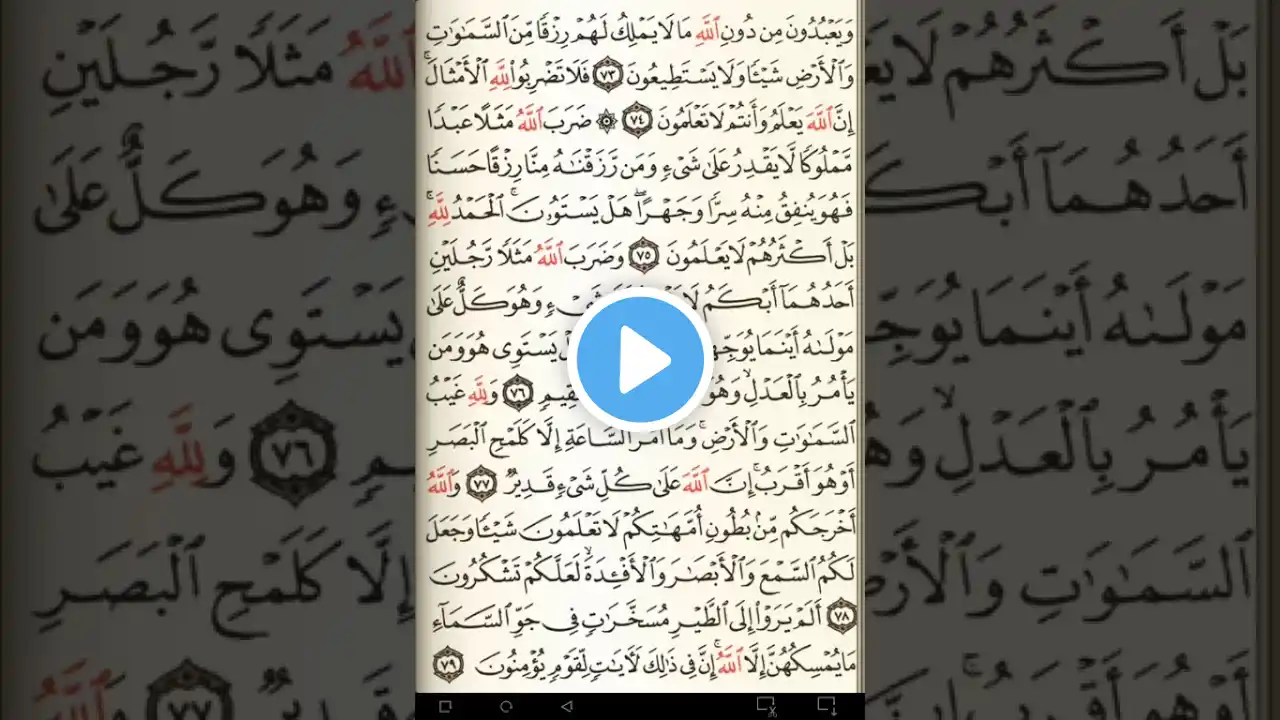 وَيَعْبُدُونَ مِن دُونِ ٱللَّهِ مَا لَا يَمْلِكُ لَهُمْ رِزْقًا مِّنَ ٱلسَّمَٰوَٰتِ
وَٱلْأَرْضِ شَيْـًٔا وَلَا يَسْتَطِيعُونَ ٧٣ فَلَا تَضْرِبُوا۟ لِلَّهِ ٱلْأَمْثَالَ ۚ
إِنَّ ٱللَّهَ يَعْلَمُ وَأَنتُمْ لَا تَعْلَمُونَ ٧٤ ۞ ضَرَبَ ٱللَّهُ مَثَلًا عَبْدًا
مَّمْلُوكًا لَّا يَقْدِرُ عَلَىٰ شَىْءٍ وَمَن رَّزَقْنَٰهُ مِنَّا رِزْقًا حَسَنًا
فَهُوَ يُنفِقُ مِنْهُ سِرًّا وَجَهْرًا ۖ هَلْ يَسْتَوُۥنَ ۚ ٱلْحَمْدُ لِلَّهِ ۚ
بَلْ أَكْثَرُهُمْ لَا يَعْلَمُونَ ٧٥ وَضَرَبَ ٱللَّهُ مَثَلًا رَّجُلَيْنِ
أَحَدُهُمَآ أَبْكَمُ لَا شَىْءٍ وَهُوَ كَلٌّ عَلَىٰ
مَوْلَىٰهُ أَيْنَمَا يَسْتَوِى هُوَ وَمَن
يَأْمُرُ بِٱلْعَدْلِ ۙ وَهُوَ ٧٦ وَلِلَّهِ غَيْبُ
ٱلسَّمَٰوَٰتِ وَٱلْأَرْضِ ۚ وَمَآ أَمْرُ ٱلسَّاعَةِ إِلَّا كَلَمْحِ ٱلْبَصَرِ
أَوْ هُوَ أَقْرَبُ ۚ إِنَّ ٱللَّهَ عَلَىٰ كُلِّ شَىْءٍ قَدِيرٌ ٧٧ وَٱللَّهُ
أَخْرَجَكُم مِّنۢ بُطُونِ أُمَّهَٰتِكُمْ لَا تَعْلَمُونَ شَيْـًٔا وَجَعَلَ
لَكُمُ ٱلسَّمْعَ وَٱلْأَبْصَٰرَ وَٱلْأَفْـِٔدَةَ ۙ لَعَلَّكُمْ تَشْكُرُونَ
٧٨ أَلَمْ يَرَوْا۟ إِلَى ٱلطَّيْرِ مُسَخَّرَٰتٍ فِى جَوِّ ٱلسَّمَآءِ
مَا يُمْسِكُهُنَّ إِلَّا ٱللَّهُ ۗ إِنَّ فِى ذَٰلِكَ لَءَايَٰتٍ لِّقَوْمٍ يُؤْمِنُونَ ٧٩